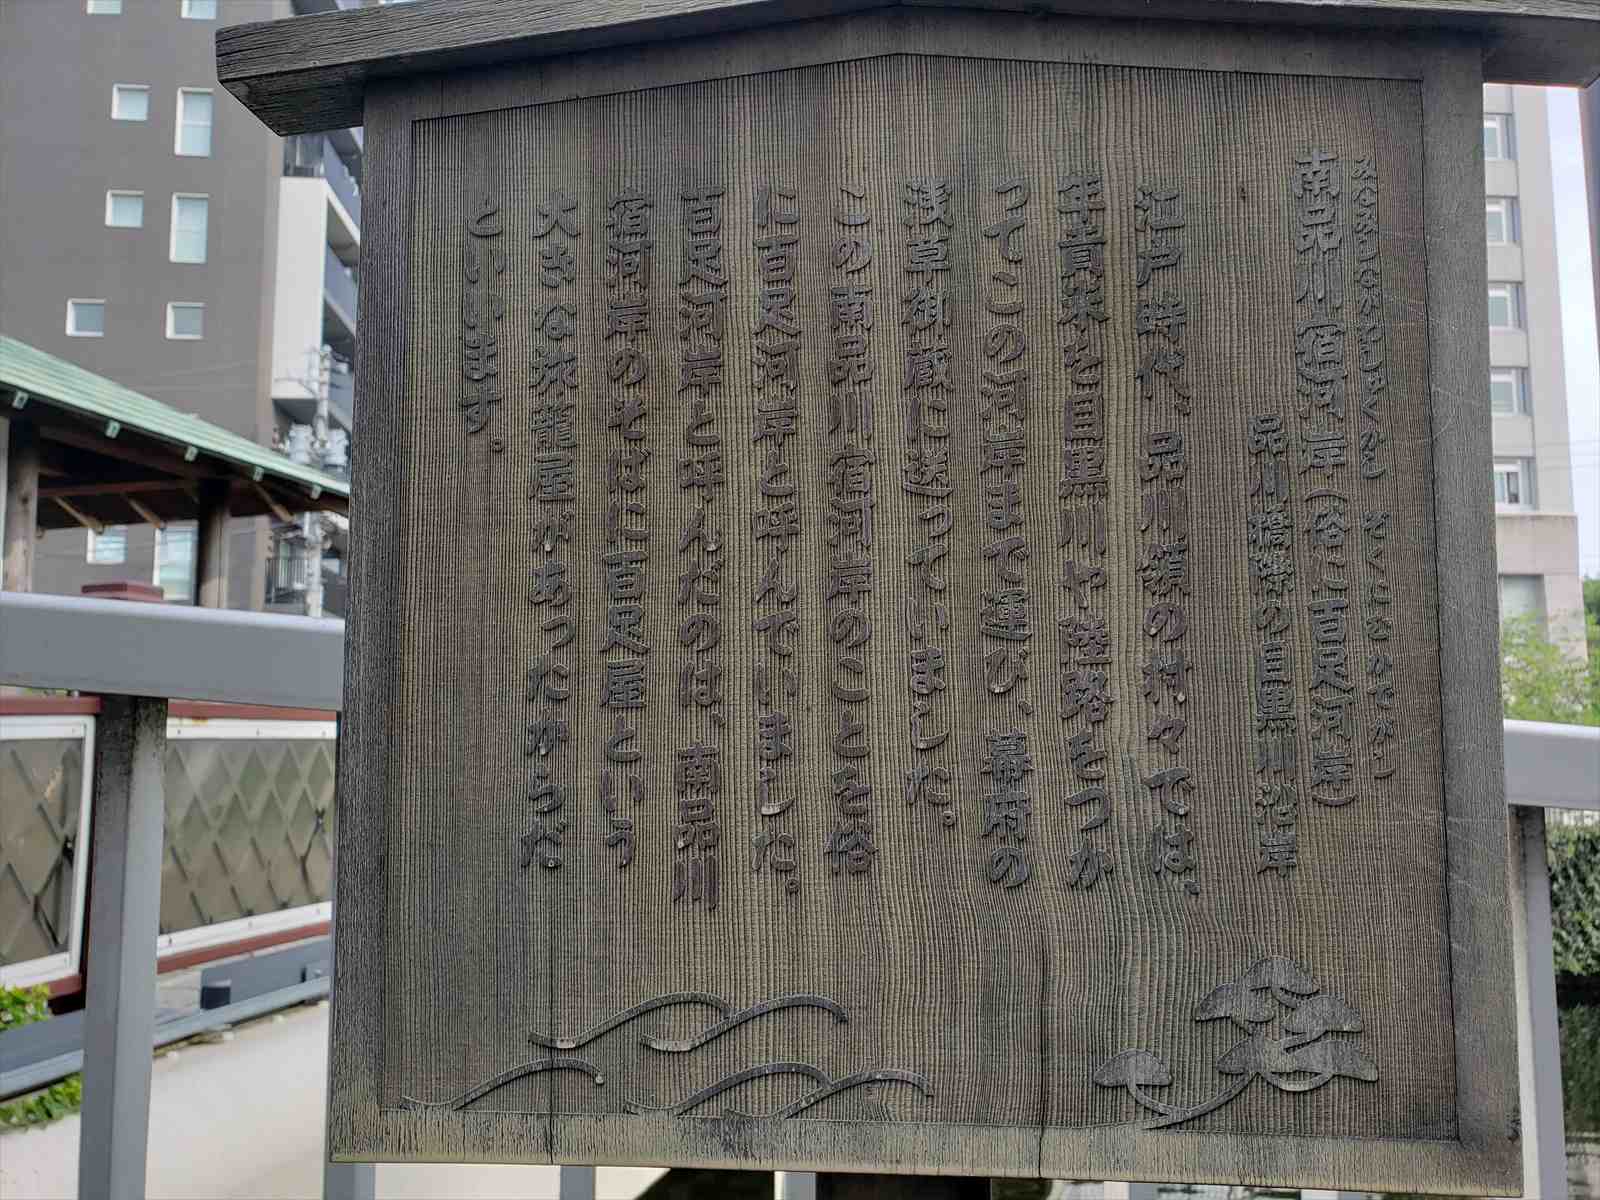 みなみしながわしゅくかし ぞくにむかでがし
南品川宿河岸(俗に百足河岸)
品川橋際の目黒川沿岸
江戸時代、品川領の村々では、
年貢米を目黒川や陸路をつか
ってこの河岸まで運び、幕府の
浅草御蔵に送っていました。
この南品川宿河岸のことを俗
に百足河岸と呼んでいました。
百足河岸と呼んだのは、南品川
宿河岸のそばに百足屋という
大きな旅籠屋があったからだ
といいます。